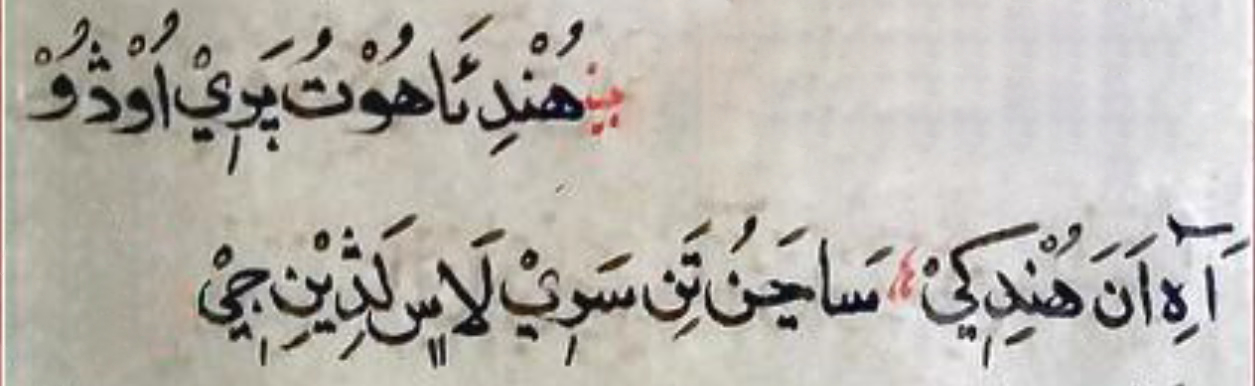 هُنْدِ نَاهُوْتُ پَرِيْ اُوْڎُوْ
آهِ اَنَ هُنْدِ كِيْ سَاجَنُ تَنِ سَرِيْ لَاسٍ لَڎِيْنِ جِيْ